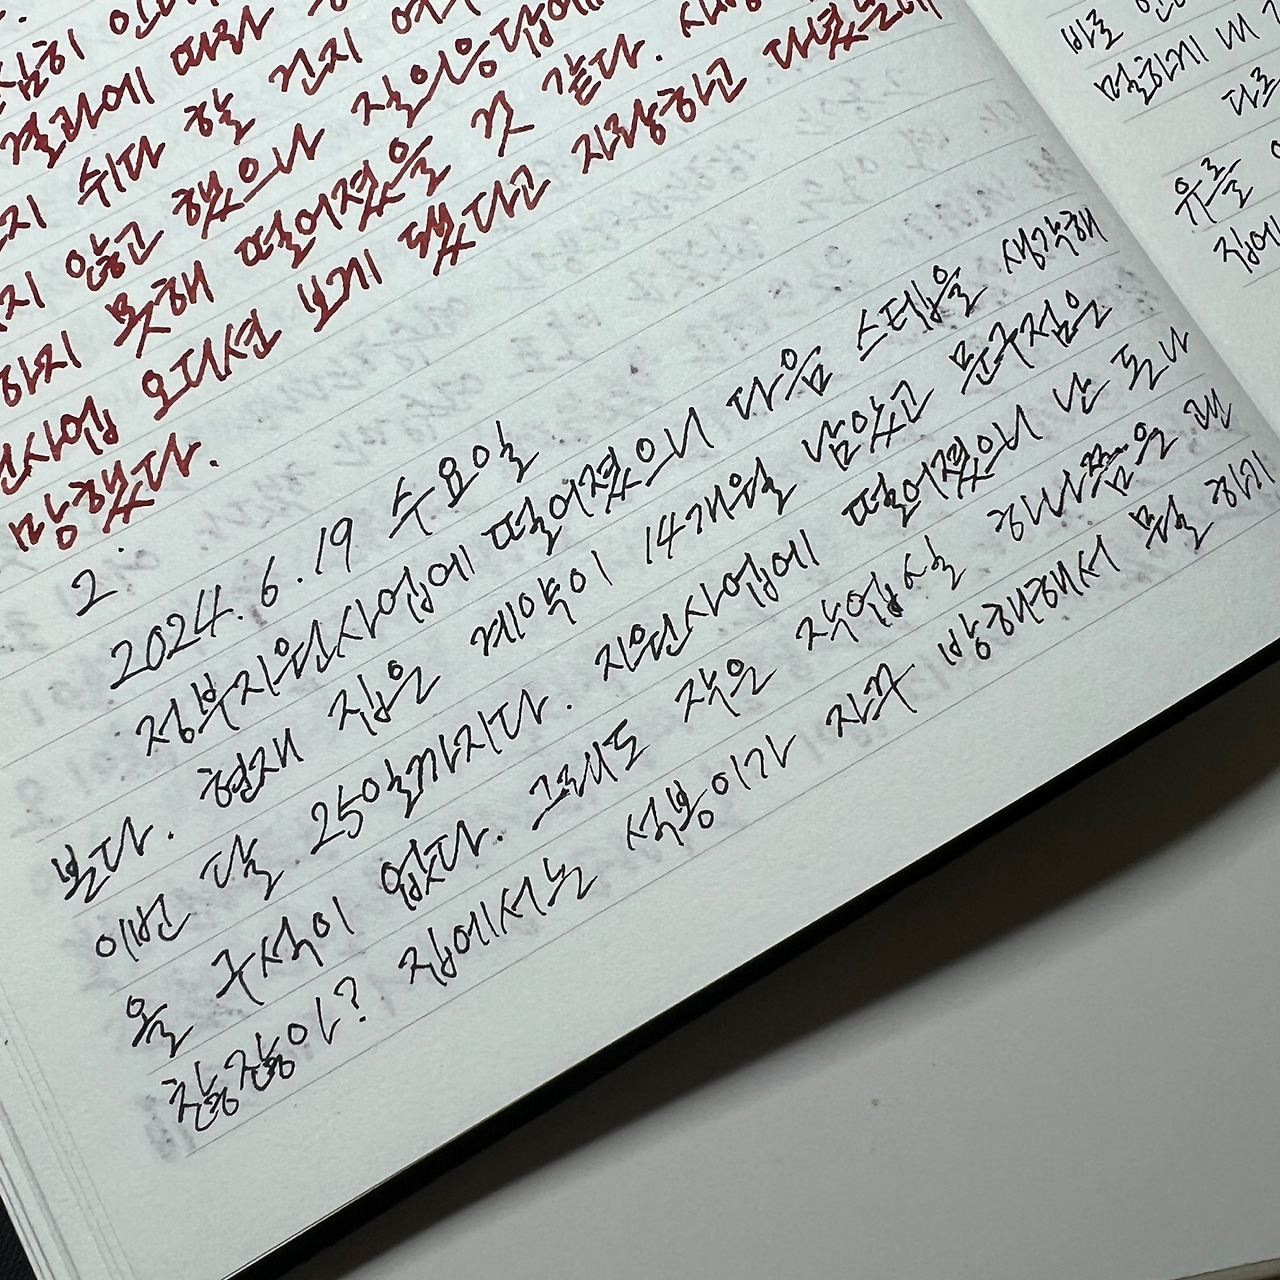 결과에 따라
쉬다 할 건지 여
지 않고 했으나 질의응답에
하지 못해 떨어졌을 것 같다.
사업 오디션 보게 됐다고 자랑하고 다녔는데
망했다.
2.
2024. 6. 19 수요일
정부지원사업에 떨어졌으니 다음 스텝을 생각해
본다. 현재 집은 계약이 14개월 남았고 문구점은
이번 달 25일까지다. 지원사업에 떨어졌으니 난 돈 나
올 구석이 없다. 그래도 작은 작업실 하나쯤은 괜
찮잖아? 집에서는 석봉이가 자꾸 방해해서 뭘 하기
바로
멀하게 내
다른
유를
집에